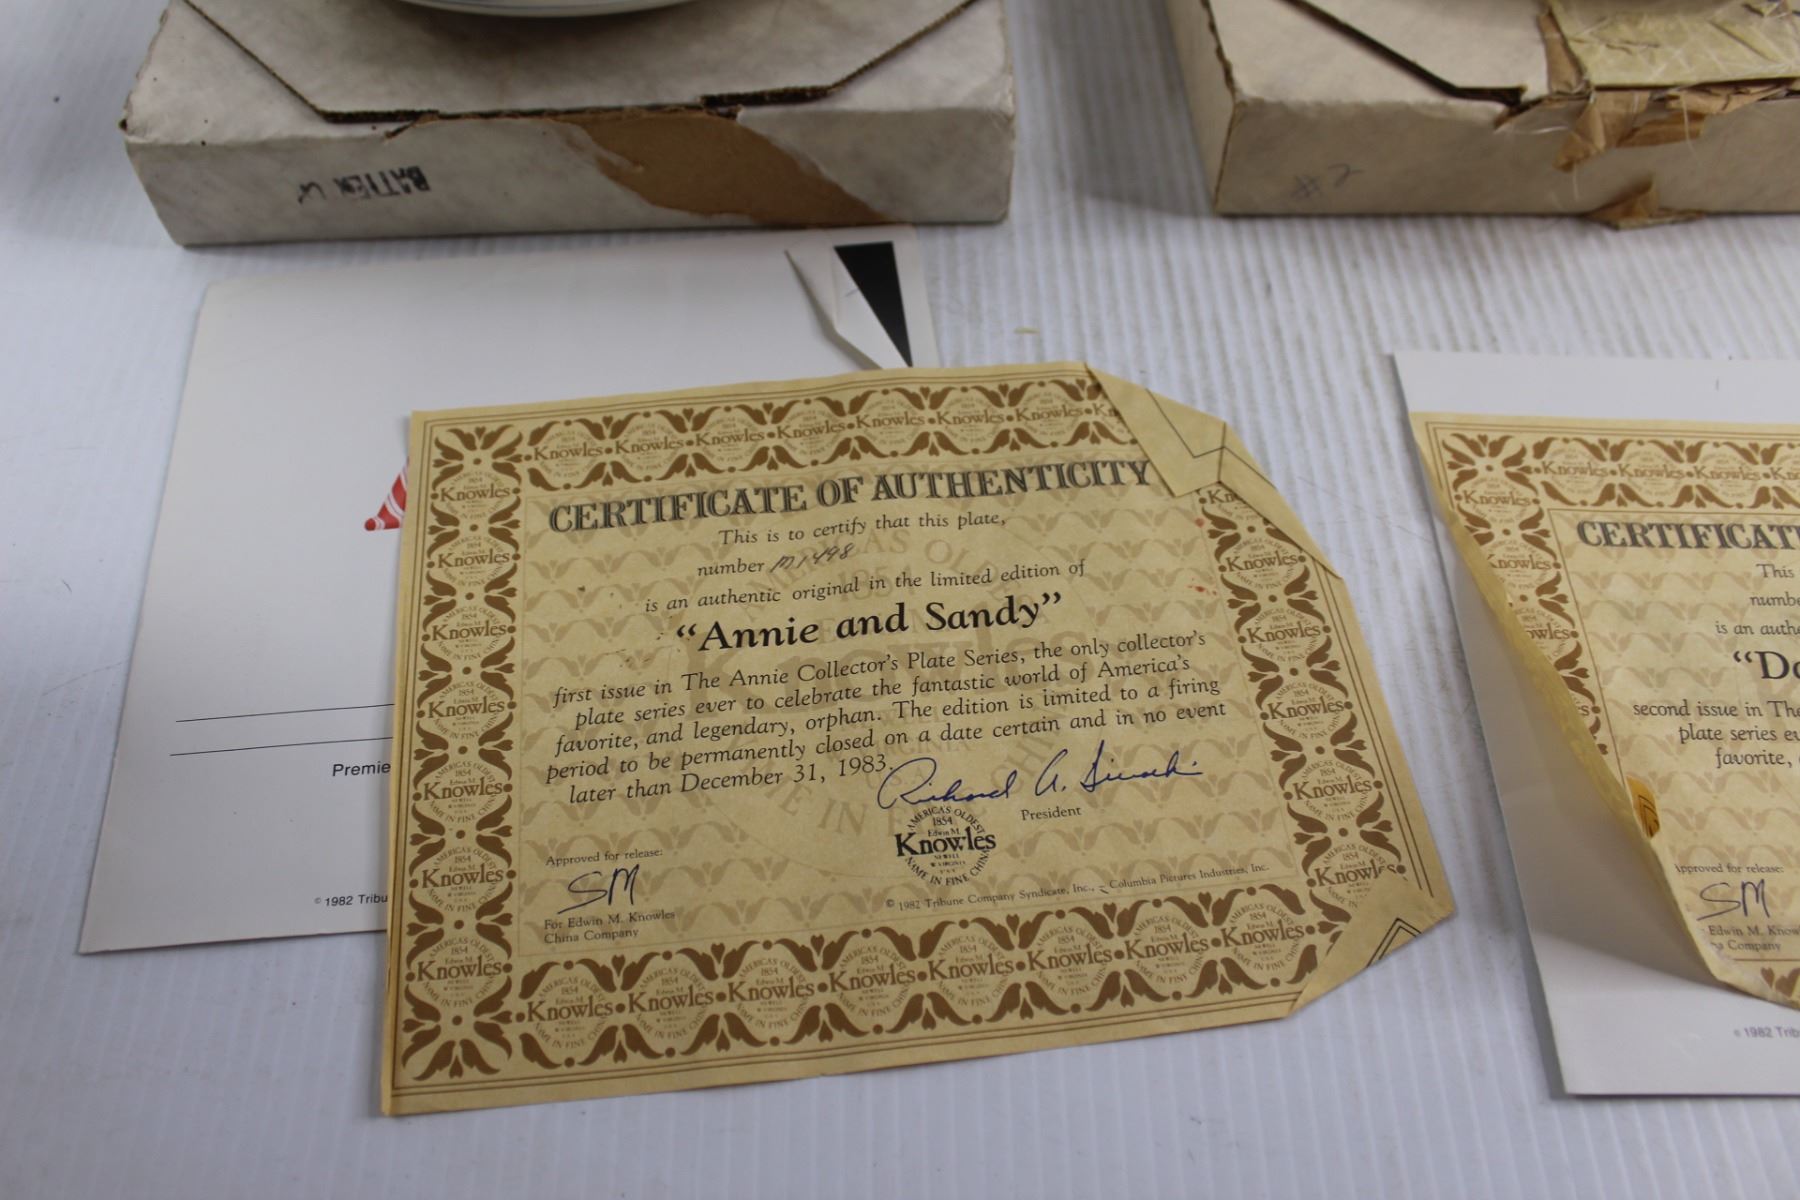 BATTEN
#2
CERTIFICATE OF AUTHENTICITY
This is to certify that this plate,
number M1498
is an authentic original in the limited edition of
"Annie and Sandy"
first issue in The Annie Collector's Plate Series, the only collector's
plate series ever to celebrate the fantastic world of America's
favorite, and legendary, orphan. The edition is limited to a firing
period to be permanently closed on a date certain and in no event
later than December 31, 1983.
Richard A.
President
AMERICA'S OLDEST
1854
Edwin M.
Knowles
NEWELL
W VIRGINIA
U S A
NAME IN FINE CHINA
Approved for release:
SM
For Edwin M. Knowles
China Company
© 1982 Tribune Company Syndicate, Inc., Columbia Pictures Industries, Inc.
Premie
© 1982 Tribu
CERTIFICAT
This
numbe
is an authe
"Do
second issue in The
plate series ev
favorite,
Approved for release:
SM
Edwin M. Know
Company
© 1982 Trib